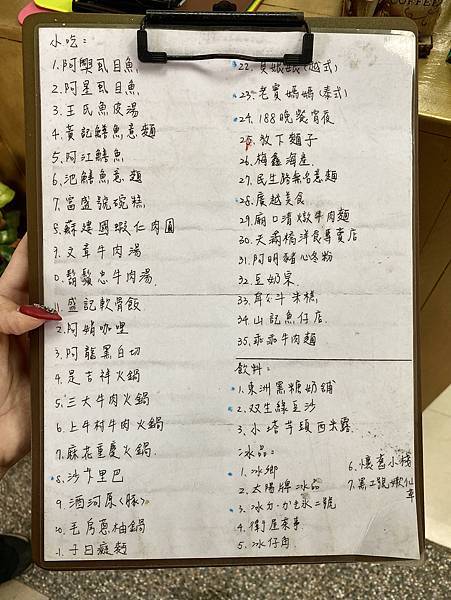 小吃：
1. 阿興虱目魚
2. 阿星虱目魚
3. 王氏魚皮湯
4. 黃記鱔魚意麵
5. 阿江鱔魚
6. 池鱔魚意麵
7. 富盛號碗粿
8. 蘇媽圓蝦仁肉圓
9. 文章牛肉湯
0. 鬍鬚忠牛肉湯
11. 盛記軟骨飯
2. 阿娟咖哩
3. 阿龍黑白切
4. 是吉祥火鍋
5. 三大牛肉火鍋
6. 上牛村牛肉火鍋
7. 麻花重慶火鍋
8. 沙卞里巴
9. 酒河原(豚)
20. 毛房蔥柚鍋
1. 子曰癡麵
22. 貝娘娘(越式)
23. 老賈媽媽(泰式)
24. 188晚粄宵夜
25. 放下麵子
26. 梅鑫海産
27. 民生路無名意麵
28. 廣越美食
29. 廟口清燉牛肉麵
30. 天滿橋洋食專賣店
31. 阿明豬心冬粉
32. 豆奶宗
33. 米糕
34. 山記魚仔店
35. 乖乖牛肉麵
飲料：
1. 東洲黑糖奶鋪
2. 双生綠豆沙
3. 小塔芋頭西米露
冰品：
1. 冰鄉
2. 太陽牌冰品
3. 冰力かき氷二號
4. 衛屋茶事
5. 冰仔角
6. 懷舊小棧
7. 黑工號嫩仙草